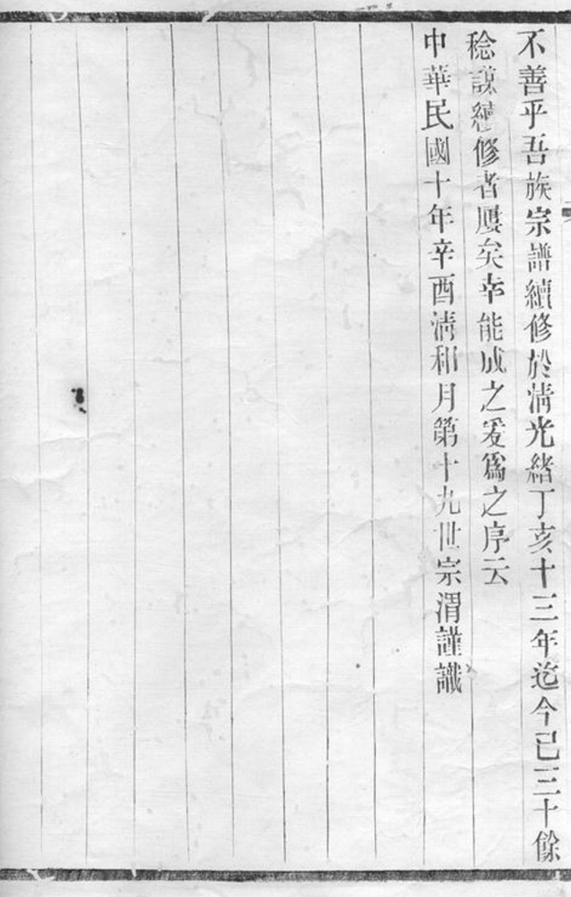 不善乎吾族宗譜續修於淸光緒丁亥十三年迄今已三十餘
稔謀續修者屢矣幸能成之爰爲之序云
中華民國十年辛酉淸和月第十九世宗渭謹識